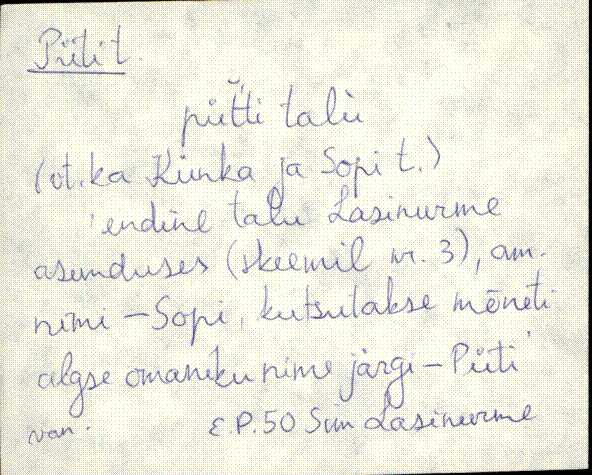 Püti t.
pütti talu
(vt. ka Künka ja Sopi t.)
endine talu Lasinurme
asunduses (skeemil nr. 3), am.
nimi – Sopi, kutsutakse mõneti
algse omaniku nime järgi – Püti
van. E.P. 50 Sim Lasinurme